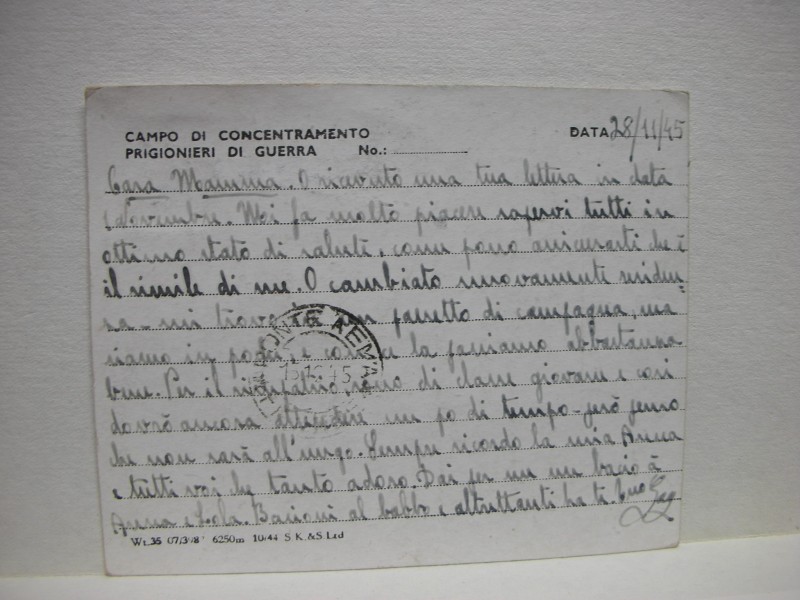 CAMPO DI CONCENTRAMENTO
PRIGIONIERI DI GUERRA No.:
DATA 28/11/45
Cara Mamma. O ricevuto una tua lettera in data
Novembre. Mi fa molto piacere sapervi tutti in
ottimo stato di salute, come posso assicurarti che è
il simile di me. O cambiato nuovamente residen-
za - mi trovo in un paesetto di campagna, ma
siamo in pochi, e la passiamo abbastanza
bene. Per il rimpatrio, sono di classe giovane e così
dovrò ancora attendere un po di tempo - però penso
che non sarà all'lungo. Sempre ricordo la mia Anna
e tutti voi che tanto adoro. Dai per me un bacio à
Anna e Lola. Bacioni al babbo e altrettanti ha te. tuo
Wt.35 6250m 10/44 S.K.&S.Ltd